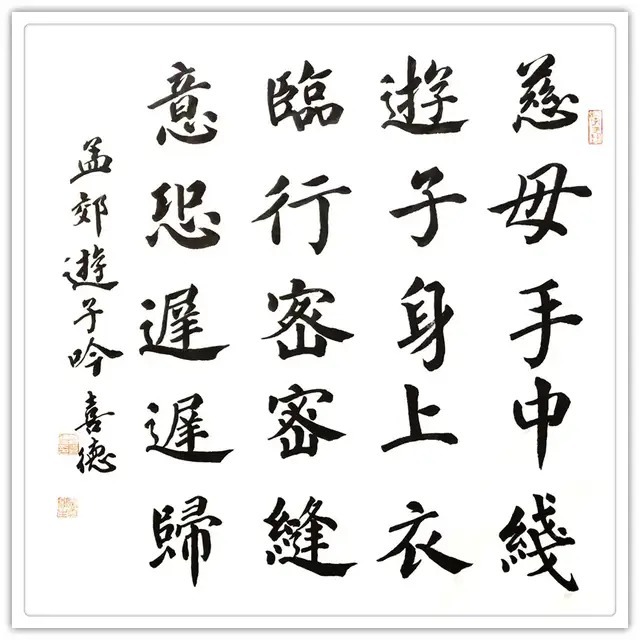 慈毋手中綫
遊子身上衣
臨行密密縫
意恐遲遲歸
孟郊遊子吟 喜德